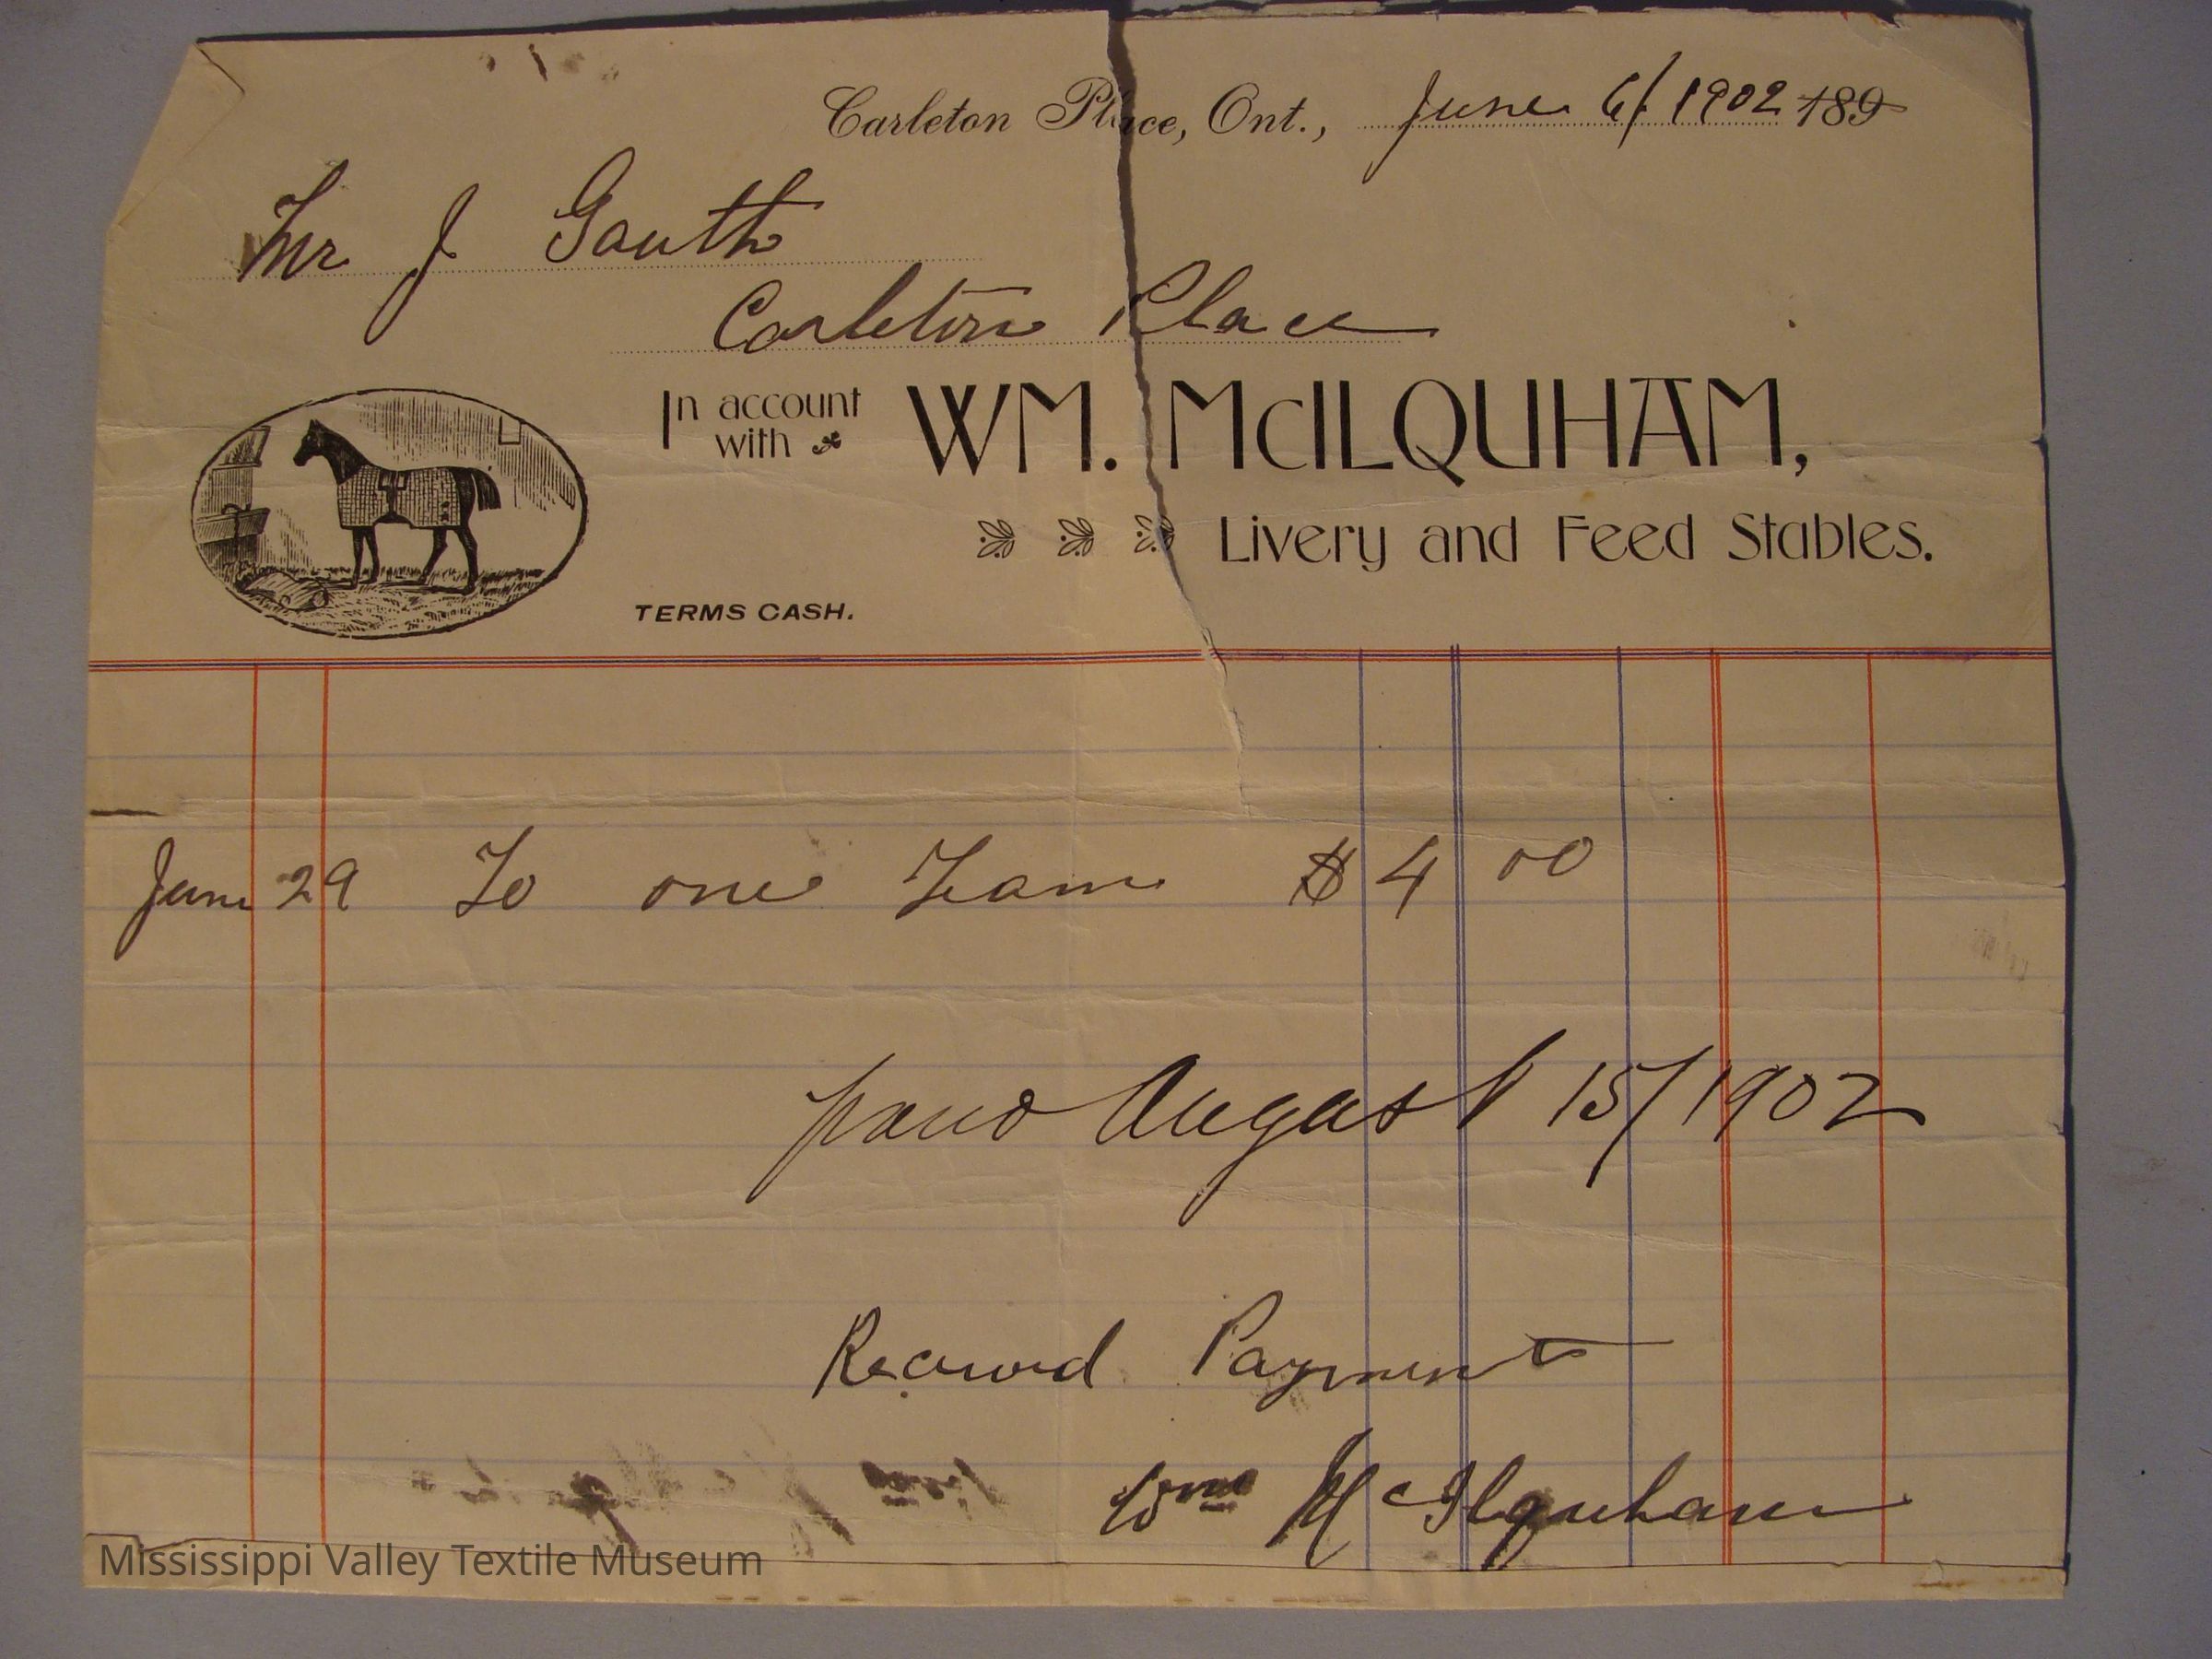 Carleton Place, Ont., June 6/ 1902 189
Mr J Gauth
Carleton Place
In account with WM. McILQUHAM,
Livery and Feed Stables.
TERMS CASH.
June 29 To one Team $4 00
paid August 15/1902
Received Payment
Wm McIlquham
Mississippi Valley Textile Museum